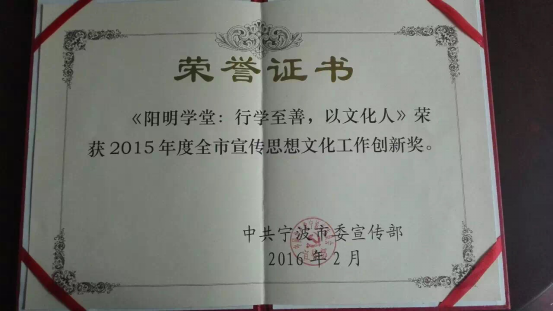 荣誉证书
《阳明学堂：行学至善，以文化人》荣
获2015年度全市宣传思想文化工作创新奖。
中共宁波市委宣传部
2016年2月